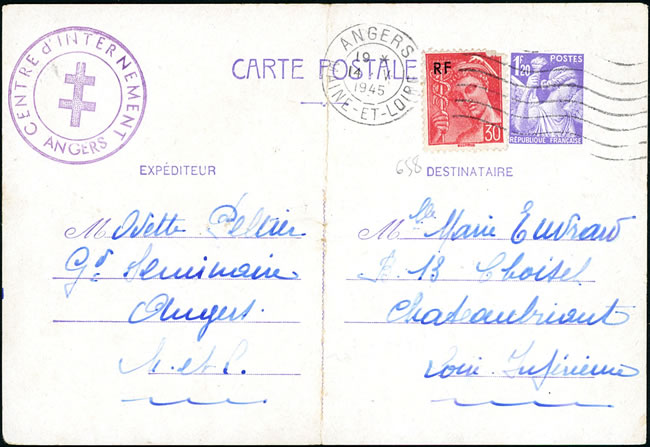 CENTRE d'INTERNEMENT
ANGERS
ANGERS
19 X
1945
MAINE-ET-LOIRE
CARTE POSTALE
RF
30c
1F20
POSTES
RÉPUBLIQUE FRANÇAISE
658
EXPÉDITEUR
M Odette Peltier
Gd Seminaire
Angers
M. et L.
DESTINATAIRE
Mlle Marie Euvrard
B. 13 Choisel
Chateaubriant
Loire Inférieure